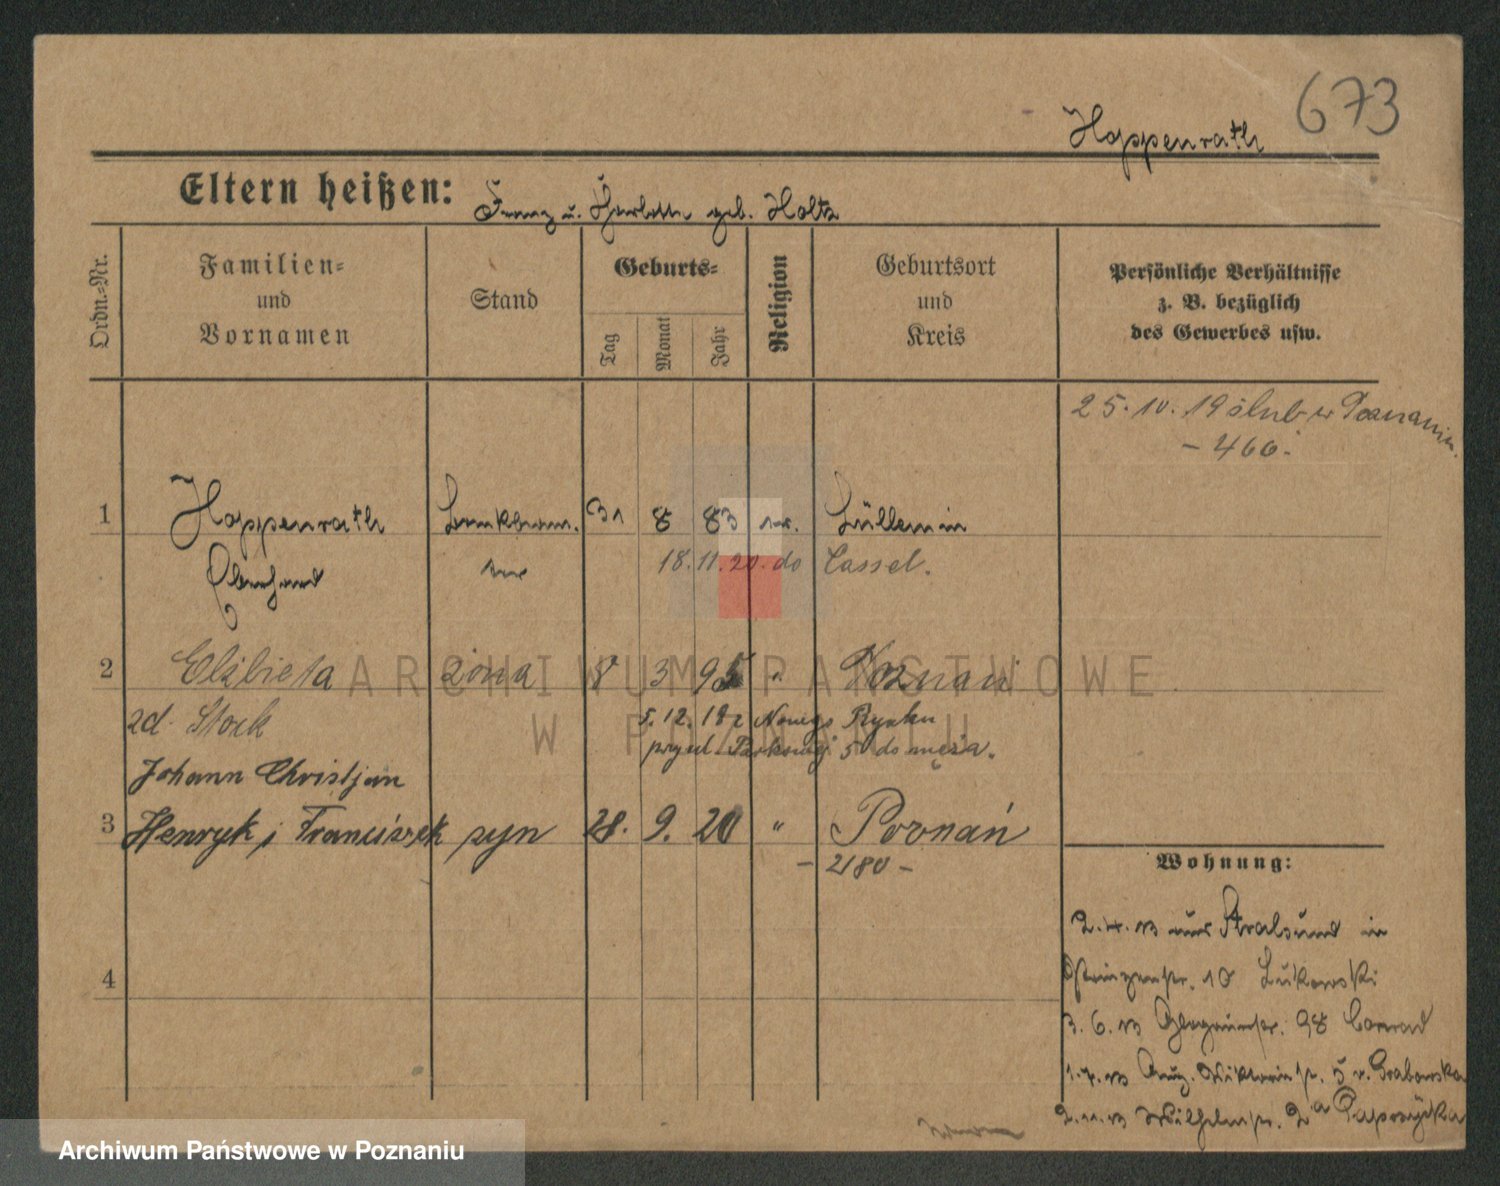 673
Hoppenrath
Eltern heißen: Franz u. Charlotte geb. Holtz
Ordn.=Nr.
Familien=
und
Vornamen
Stand
Geburts=
Tag
Monat
Jahr
Religion
Geburtsort
und
Kreis
Persönliche Verhältnisse
z. B. bezüglich
des Gewerbes usw.
25.10.19 ślub w Poznaniu.
- 466.
1 Hoppenrath Bankbeam. 31 8 83 Lüllemin
18.11.20. do Cassel.
2 Elżbieta żona 8 3 95 " Poznań
zd. Stock
5.12. Nowego Rynku
przy ul. Parkowej 5 do męża.
Johann Christjan
3 Henryk i Franciszek syn 28. 9. 20 " Poznań
- 2180 -
4
Wohnung:
aus Stralsund in
10 Lukowski
3. 6. 13 98 Conrad
Aug. Viktoria str. 5 v. Grabowska
Wilhelmstr. 2a Paprzycka
ARCHIWUM PAŃSTWOWE
W POZNANIU
Archiwum Państwowe w Poznaniu